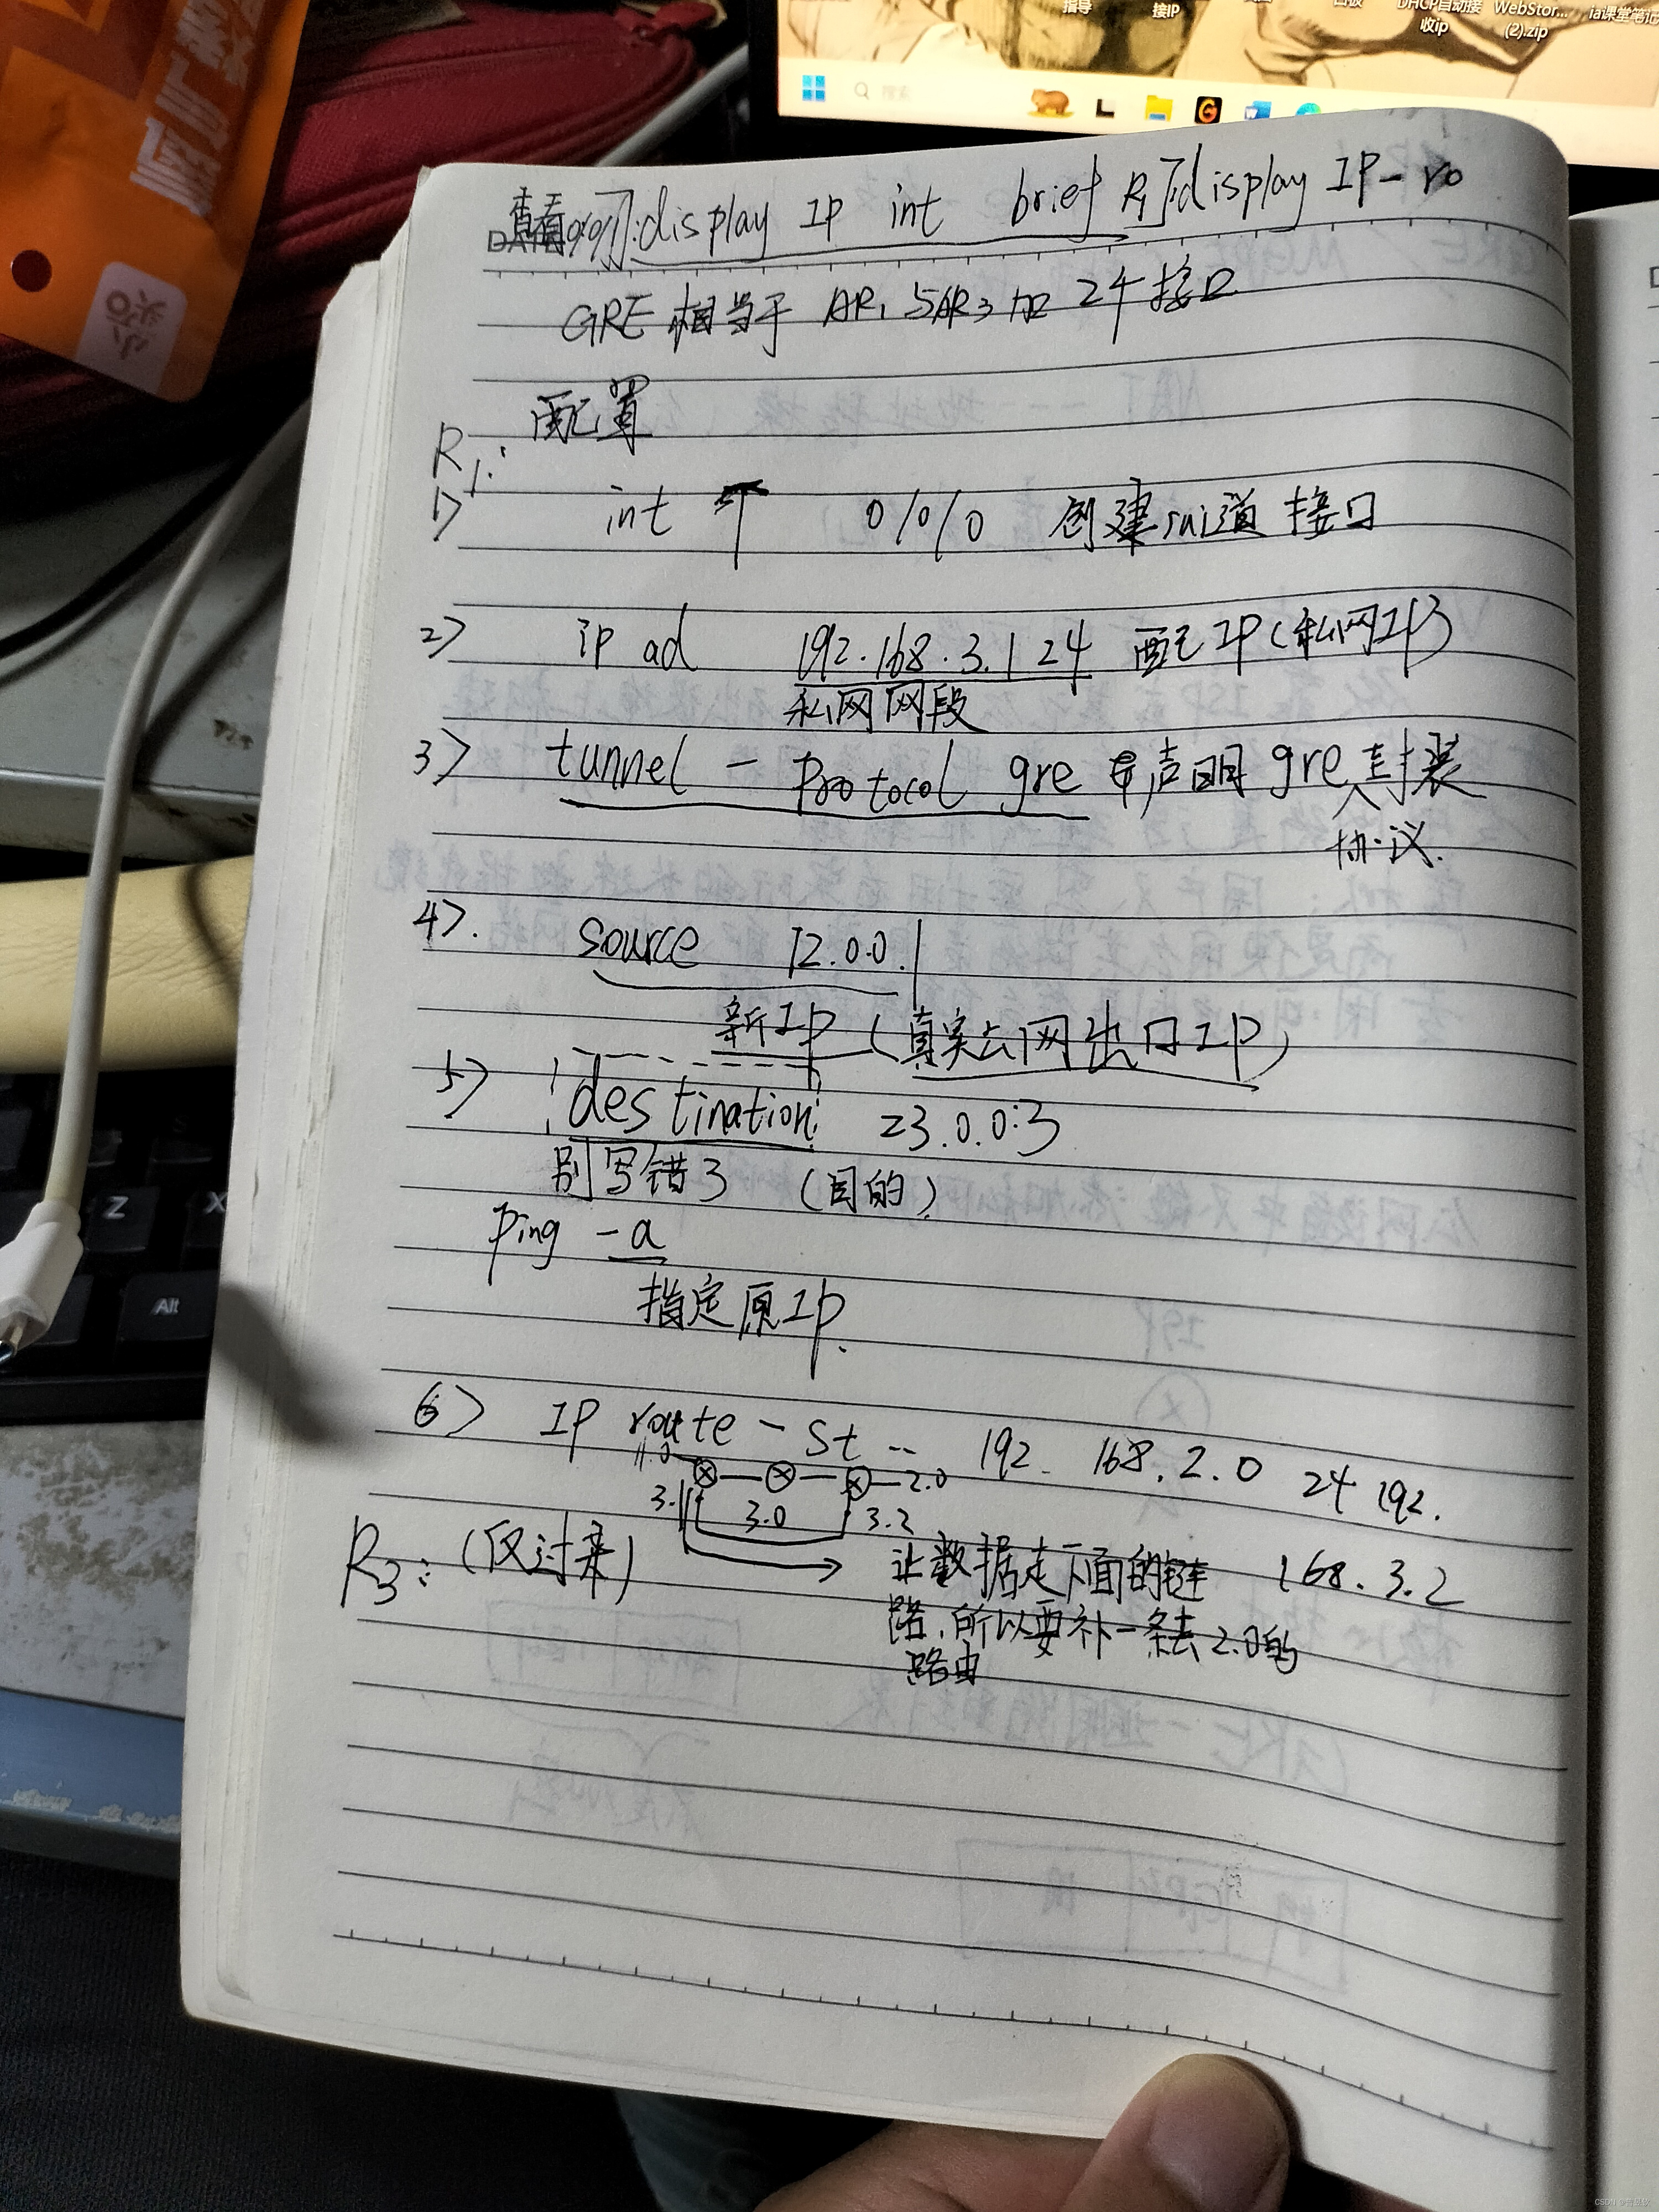 指导
接IP
DHCP自动接
收ip
WebStor...
(2).zip
ia课堂笔记
搜索
DATE
查看 :display IP int brief R1]display IP-ro
GRE 相当于 AR1 与AR3 加 24 接口
配置
R1:
1> int T 0/0/0 创建sui道 接口
2> ip ad 192.168.3.1 24 配IP(私网IP)
私网网段
3> tunnel - protocol gre 声明 gre封装
协议.
4>. source 12.0.0.1
新IP (真实公网出口IP)
5> destination 23.0.0.3
别写错了 (目的)
ping -a
指定原IP.
6> IP route - st -- 192. 168.2.0 24 192.
168.3.2
2.0
3.1
3.0
3.2
R3: (反过来)
让数据走下面的链
路,所以要补一条去2.0的
路由
Z
X
Alt